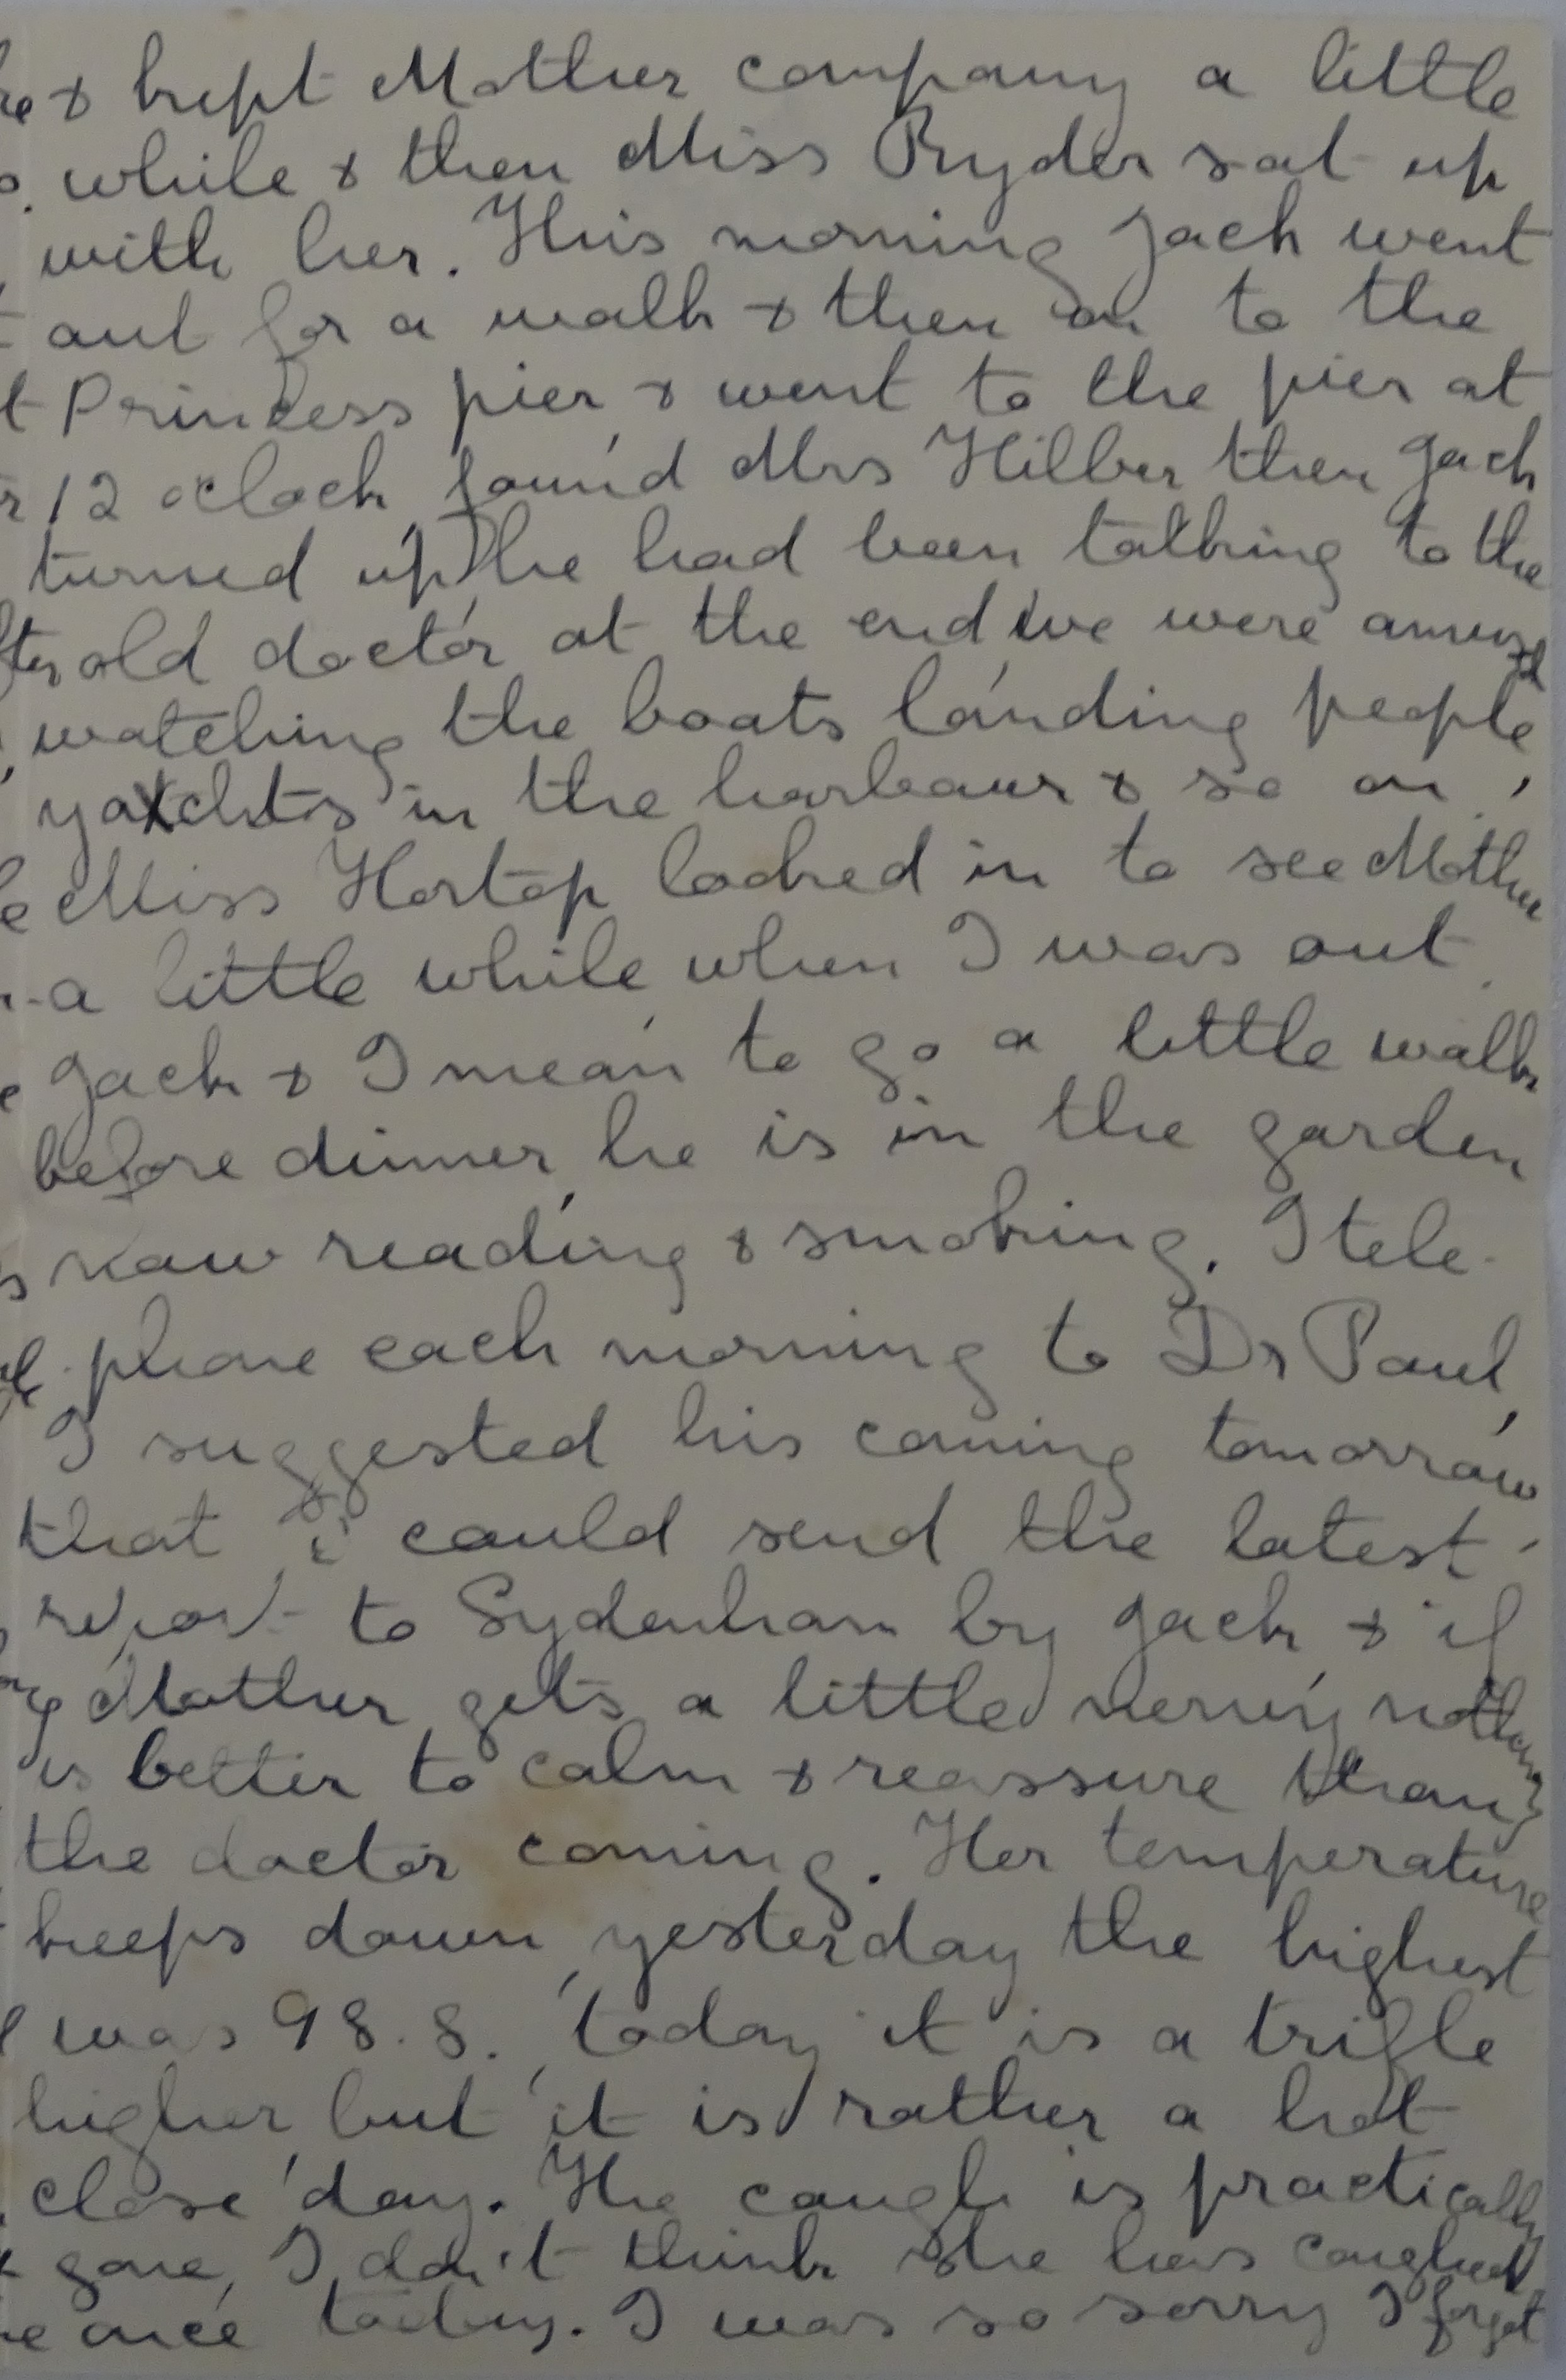 & kept Mother company a little
while & then Miss Ryder sat up
with her. This morning Jack went
out for a walk & then on to the
Princess pier & went to the pier at
12 o'clock, found Mrs Hilber then Jack
turned up, he had been talking to the
old doctor at the end, we were amused
watching the boats landing people,
yachts in the harbour & so on.
Miss Hortop looked in to see Mother
a little while when I was out.
Jack & I mean to go a little walk
before dinner, he is in the garden
now reading & smoking. I tele-
phone each morning to Dr Paul,
I suggested his coming tomorrow
that I could send the latest
report to Sydenham by Jack & if
Mother gets a little nervy nothing
is better to calm & reassure than
the doctor coming. Her temperature
keeps down, yesterday the highest
was 98.8., today it is a trifle
higher, but it is rather a hot
close day. The cough is practically
gone, I don't think she has coughed
once today. I was so sorry I forgot